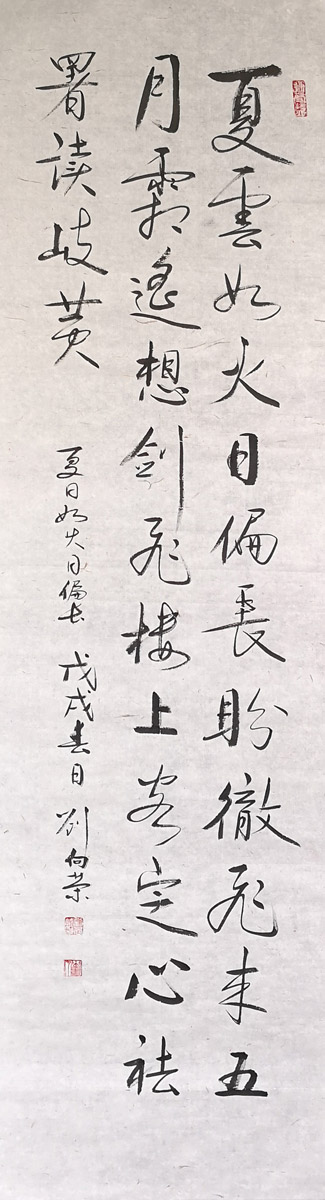 夏雲如火日偏長盼徹飛来五
月霜遙想剑飛楼上客定心祛
署读岐黄
夏日如火日偏长 戊戌春日 刘向荣